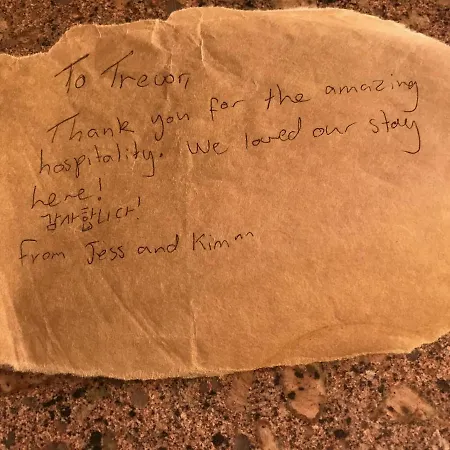 To Trevon
Thank you for the amazing
hospitality. We loved our stay
here!
감사합니다!
From Jess and Kim ^^